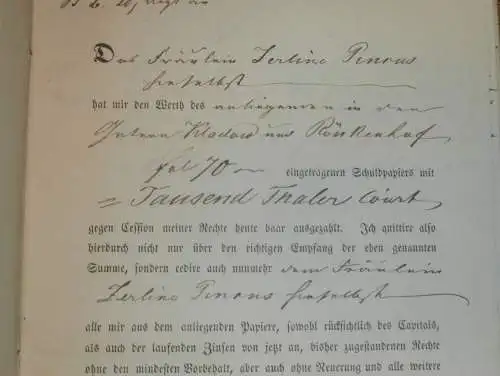 Das Fräulein Zerline Pincus
hieselbst
hat mir den Werth des anliegenden in den
Gütern Kladow und Rönkenhof
fol 70 eingetragenen Schuldpapiers mit
= Tausend Thaler Court,
gegen Cession meiner Rechte heute baar ausgezahlt. Ich quittire also
hierdurch nicht nur über den richtigen Empfang der eben genannten
Summe, sondern cedire auch nunmehr dem Fräulein
Zerline Pincus hieselbst
alle mir aus dem anliegenden Papiere, sowohl rücksichtlich des Capitals,
als auch der laufenden Zinsen von jetzt an, bisher zugestandenen Rechte
ohne den mindesten Vorbehalt, aber auch ohne Neuerung und alle weitere